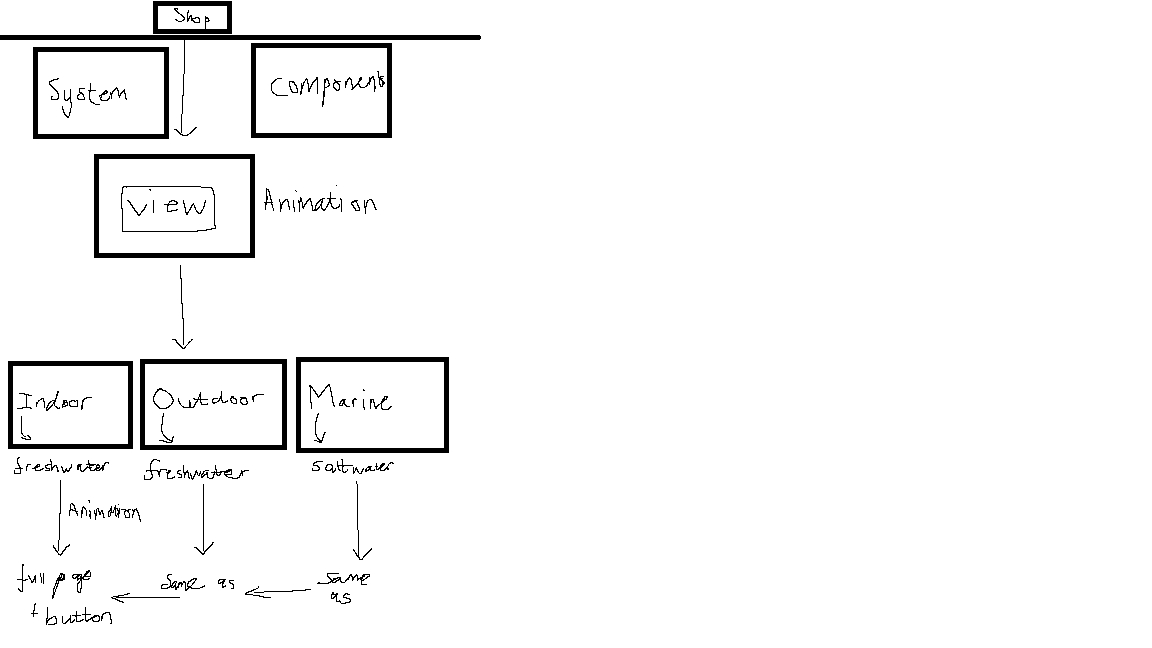 Shop
System
Component
View
Animation
Indoor
Outdoor
Marine
freshwater
freshwater
Saltwater
Animation
full page
+ button
Same as
Same
as